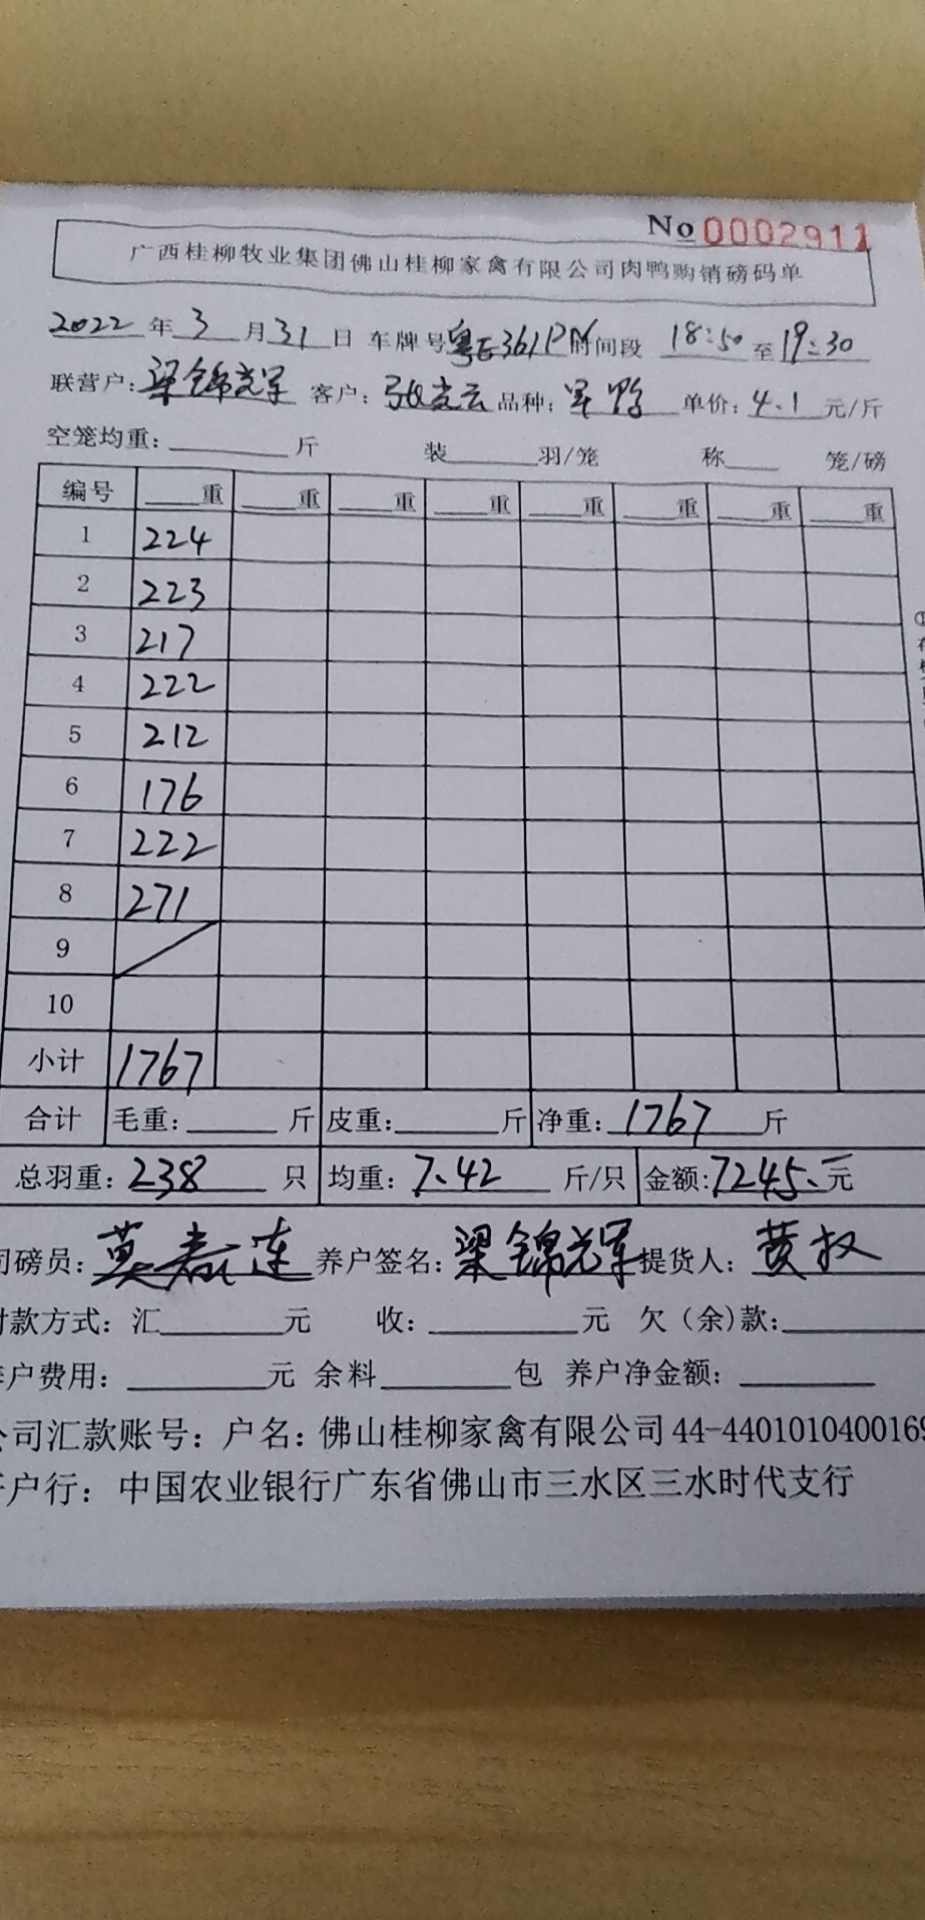 No 0002911
广西桂柳牧业集团佛山桂柳家禽有限公司肉鸭购销磅码单
2022 年 3 月 31 日 车牌号 粤E361PM 时间段 18:50 至 19:30
联营户: 梁锦 客户: 张 云 品种: 鸭 单价: 4.1 元/斤
空笼均重: 斤 装 羽/笼 称 笼/磅
编号 重 重 重 重 重 重 重 重
1 224
2 223
3 217
4 222
5 212
6 176
7 222
8 271
9
10
小计 1767
合计 毛重: 斤 皮重: 斤 净重: 1767 斤
总羽重: 238 只 均重: 7.42 斤/只 金额: 7245. 元
司磅员: 莫 连 养户签名: 梁锦 提货人: 黄权
付款方式: 汇 元 收: 元 欠(余)款:
养户费用: 元 余料 包 养户净金额:
公司汇款账号: 户名: 佛山桂柳家禽有限公司 44-440101040016
开户行: 中国农业银行广东省佛山市三水区三水时代支行